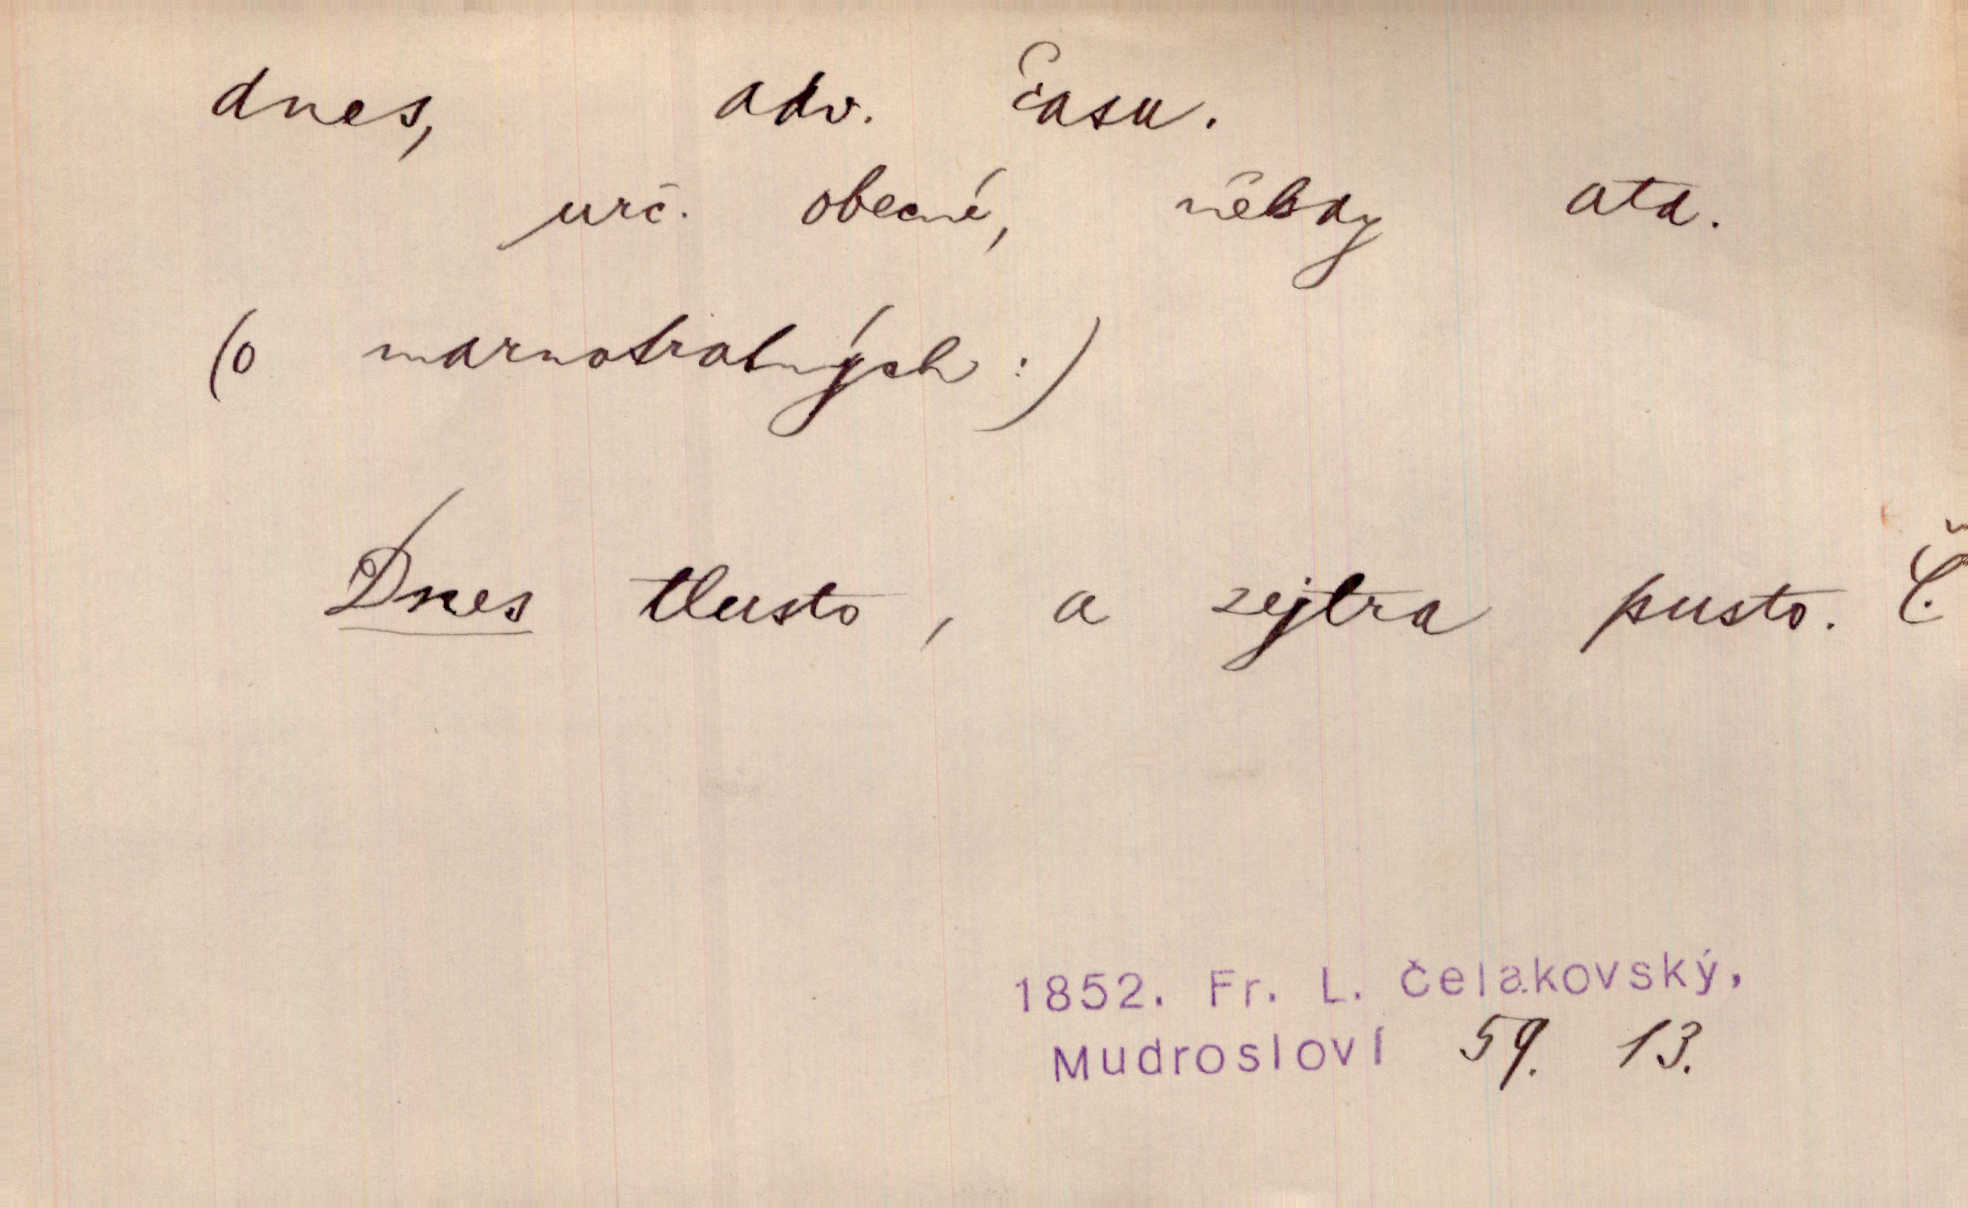 dnes, adv. času.
urč. obecné, někdy atd.
(o marnotratných:)
Dnes tlusto, a zejtra pusto. Č.
1852. Fr. L. Čelakovský,
Mudrosloví 59. 13.